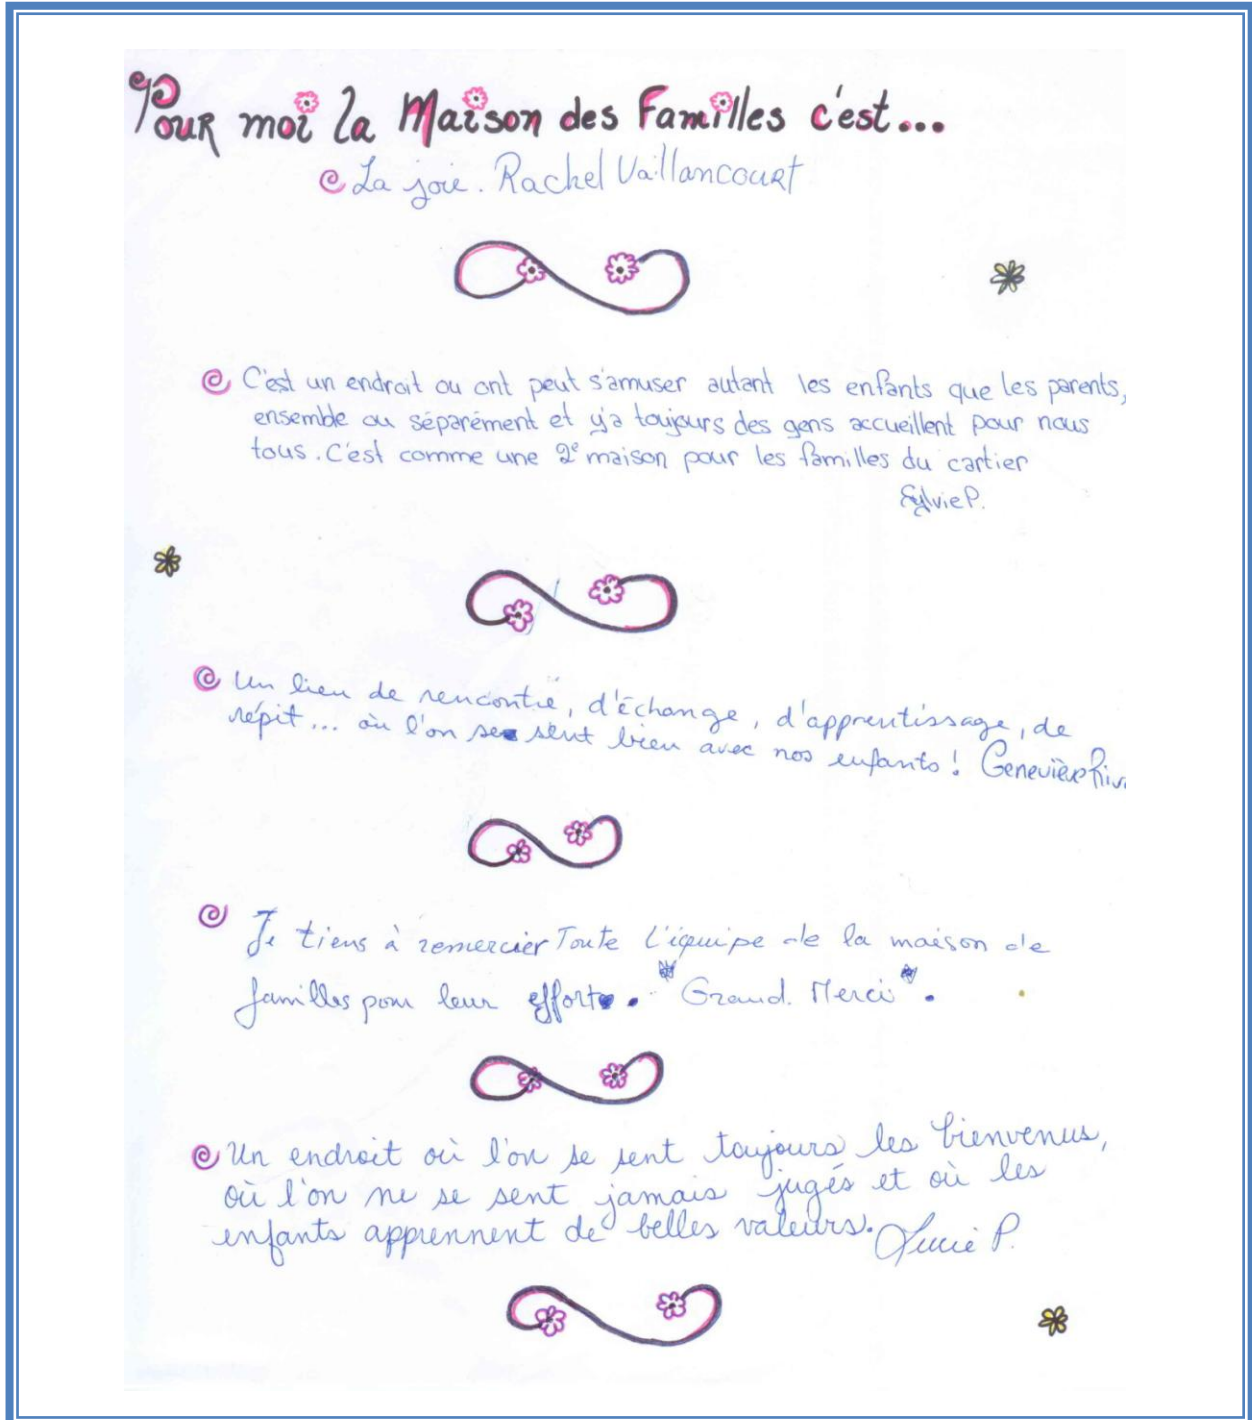 Pour moi la Maison des Familles c'est...
La joie. Rachel Vaillancourt
C'est un endroit ou ont peut s'amuser autant les enfants que les parents,
ensemble ou séparément et y'a toujours des gens accueillent pour nous
tous. C'est comme une 2e maison pour les familles du cartier
Sylvie P.
Un lieu de rencontre, d'échange, d'apprentissage, de
répit... où l'on se sent bien avec nos enfants! Geneviève
Je tiens à remercier Toute l'équipe de la maison de
familles pour leur efforts. "Grand. Merci".
Un endroit où l'on se sent toujours les bienvenus,
où l'on ne se sent jamais jugés et où les
enfants apprennent de belles valeurs. Lucie P.